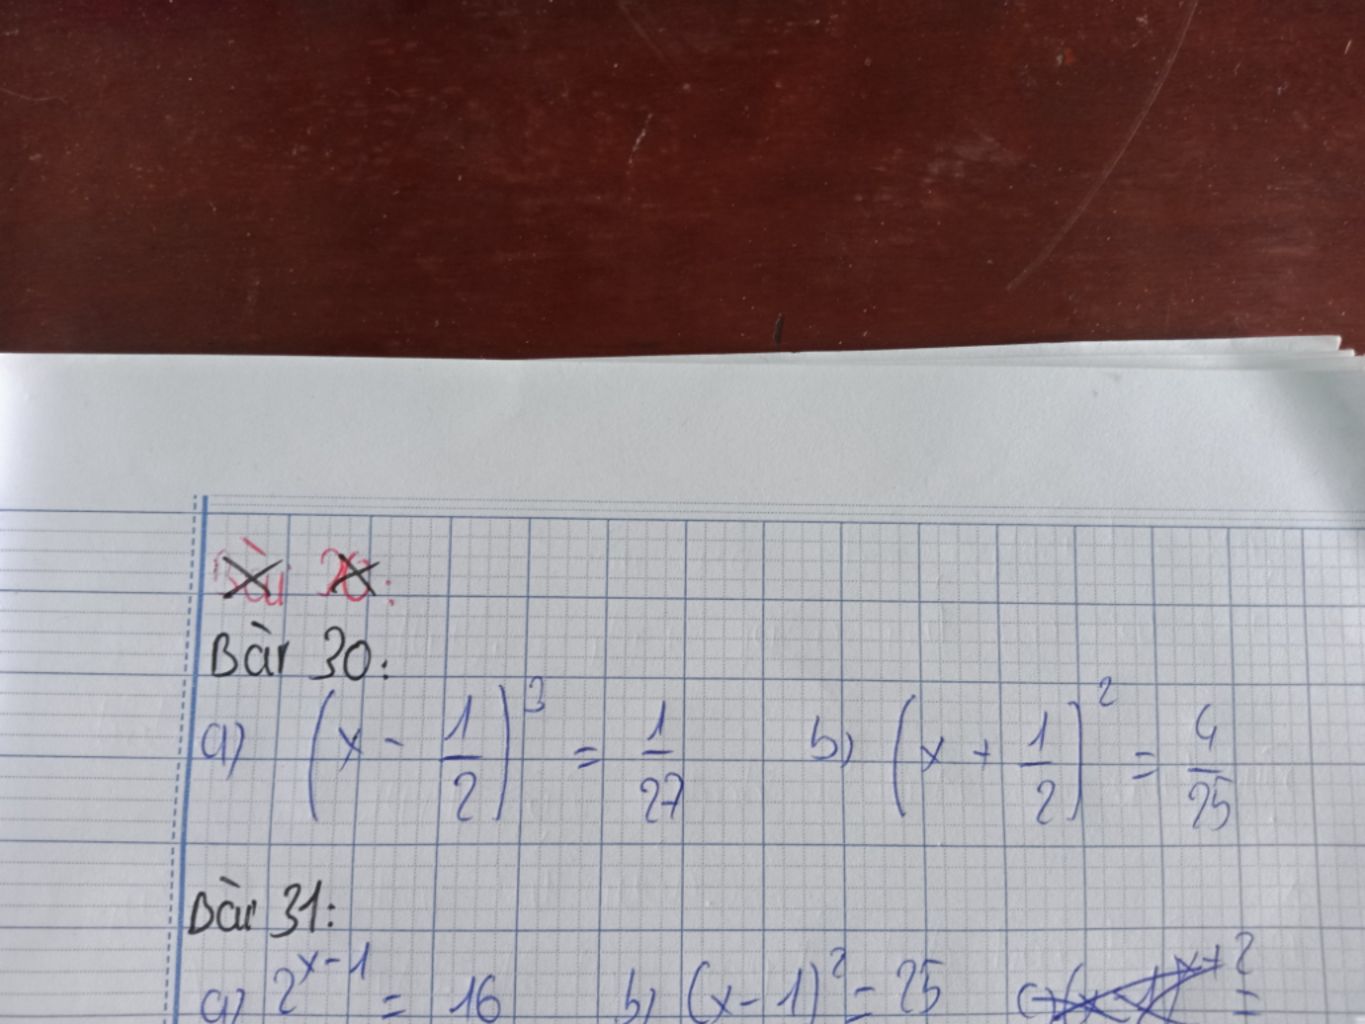 Bài 30:
a) (x - 1/2)^3 = 1/27 b) (x + 1/2)^2 = 4/25
Bài 31:
a) 2^{x-1} = 16 b) (x - 1)^2 = 25